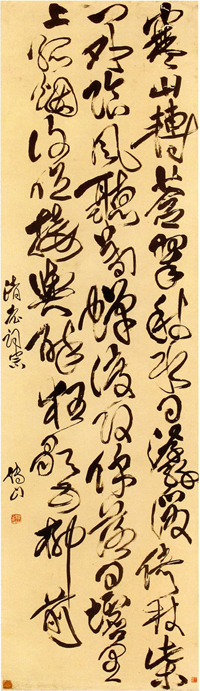 寒山轉蒼翠秋水日潺湲倚杖柴
門外臨風聽暮蟬渡頭餘落日墟里
上孤烟復值接輿醉狂歌五柳前
詞宗
傅山